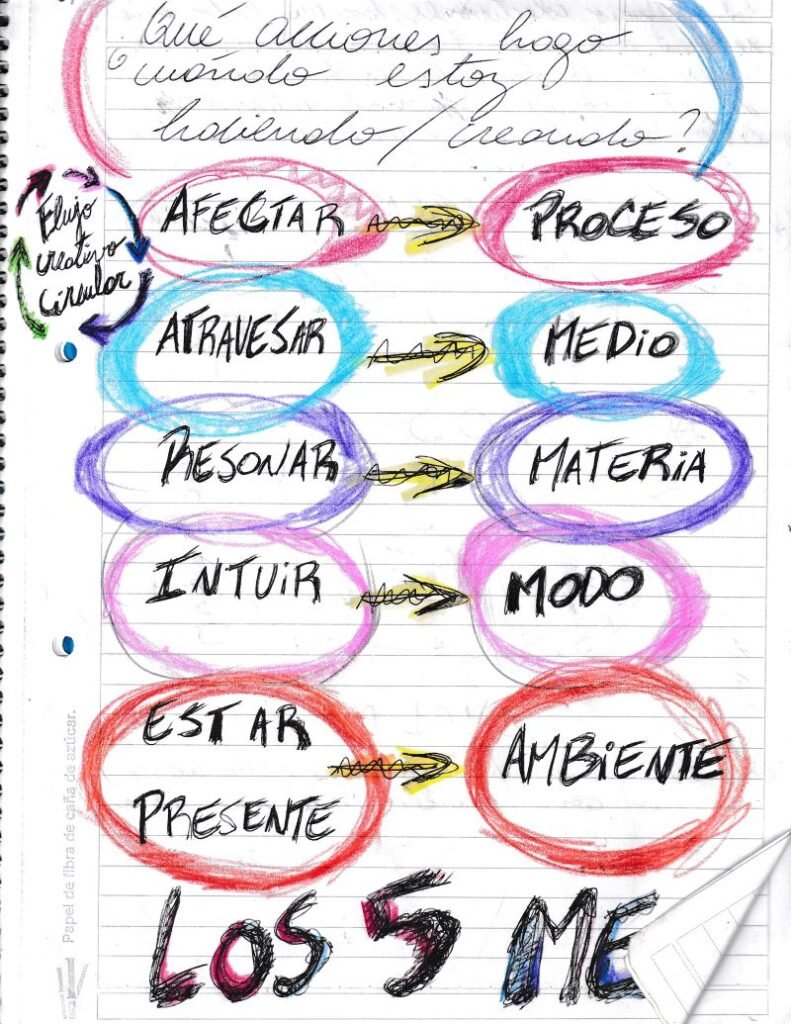 Qué acciones hago
cuándo estoy
haciendo/creando?
Flujo
creativo
Circular
AFECTAR
PROCESO
ATRAVESAR
MEDiO
RESONAR
MATERiA
INTUiR
MODO
ESTAR
PRESENTE
AMBiENTE
LOS 5 ME
Papel de fibra de caña de azúcar.